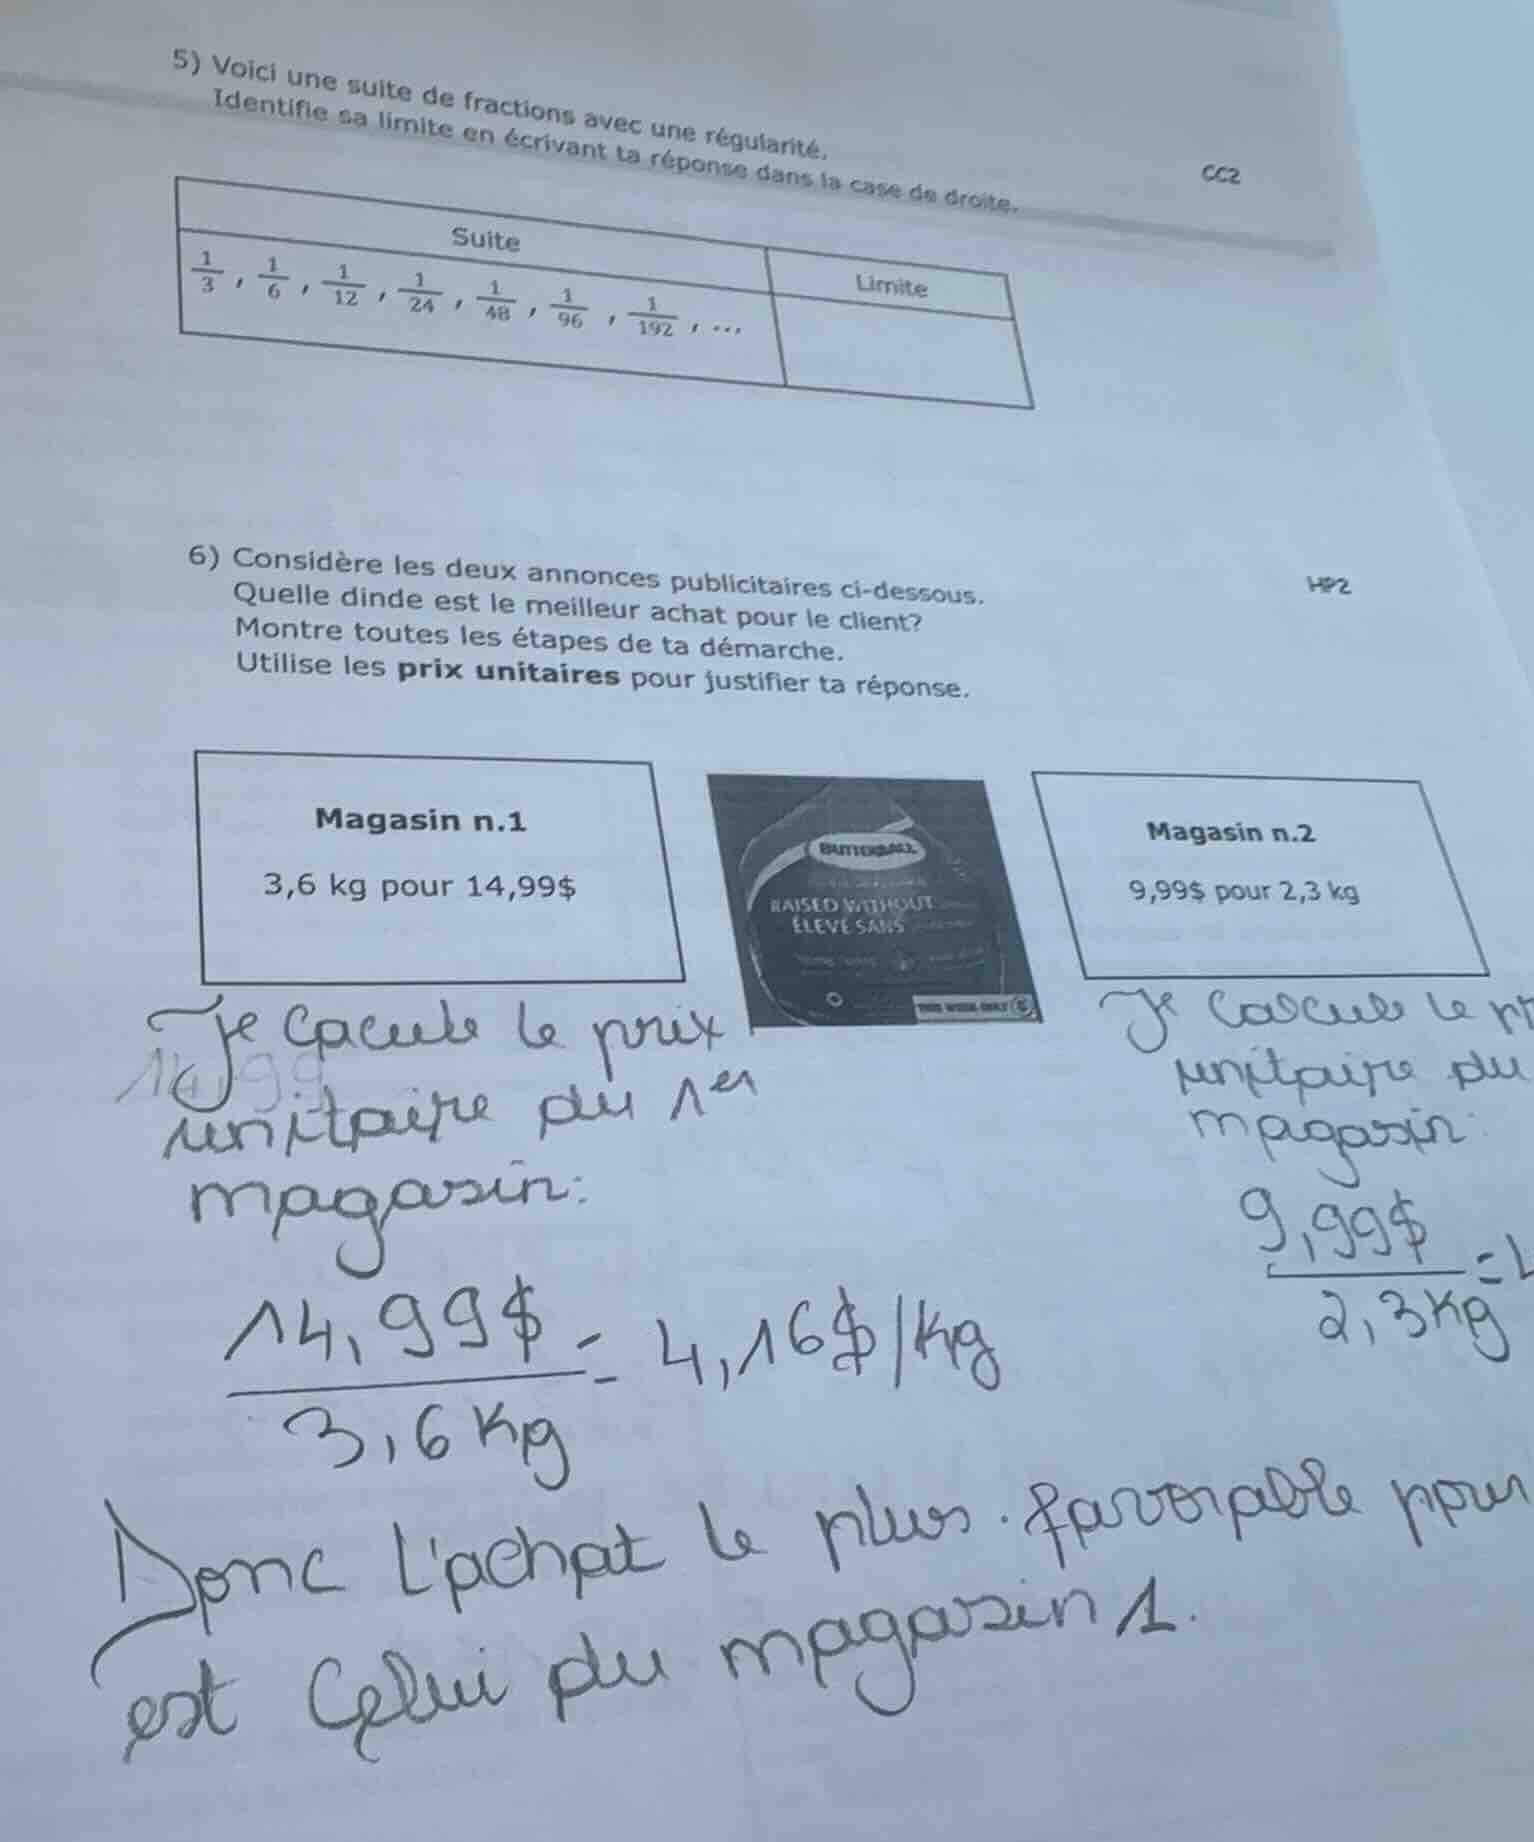 5) Voici une suite de fractions avec une régularité.
Identifie sa limite en écrivant ta réponse dans la case de droite.
CC2
Suite
Limite
1/3, 1/6, 1/12, 1/24, 1/48, 1/96, 1/192, ...
6) Considère les deux annonces publicitaires ci-dessous.
HP2
Quelle dinde est le meilleur achat pour le client?
Montre toutes les étapes de ta démarche.
Utilise les prix unitaires pour justifier ta réponse.
Magasin n.1
3,6 kg pour 14,99$
BUTTERBALL
RAISED WITHOUT
ÉLEVÉ SANS
Magasin n.2
9,99$ pour 2,3 kg
Je cacule le prix
14,99
unitaire du 1er
magasin:
14,99$ / 3,6 kg = 4,16$/kg
Je calcule le
unitaire du
magasin:
9,99$ / 2,3 kg =
Donc l'achat le plus favorable pour
est celui du magasin 1.